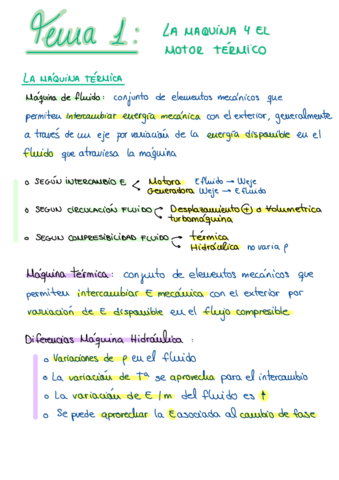 Tema 1: LA MAQUINA Y EL
MOTOR TÉRMICO
LA MÁQUINA TÉRMICA
Máquina de fluido: conjunto de elementos mecánicos que
permiten intercambiar energía mecánica con el exterior, generalmente
a través de un eje por variación de la energía disponible en el
fluido que atraviesa la máquina
o SEGÚN INTERCAMBIO E < Motora Efluido → Weje
Generadora Weje → Efluido
o SEGUN CIRCULACIÓN FLUIDO < Desplazamiento (+) o Volumétrica
turbomáquina
o SEGUN COMPRESIBILIDAD FLUIDO < térmica
Hidráulica no varia ρ
Máquina Térmica: conjunto de elementos mecánicos que
permiten intercambiar E mecánica con el exterior por
variación de E disponible en el flujo compresible
Diferencias Máquina Hidráulica :
o Variaciones de ρ en el fluido
o La variación de Tª se aprovecha para el intercambio
o La variación de E/m del fluido es ↑
o Se puede aprovechar la E asociada al cambio de fase